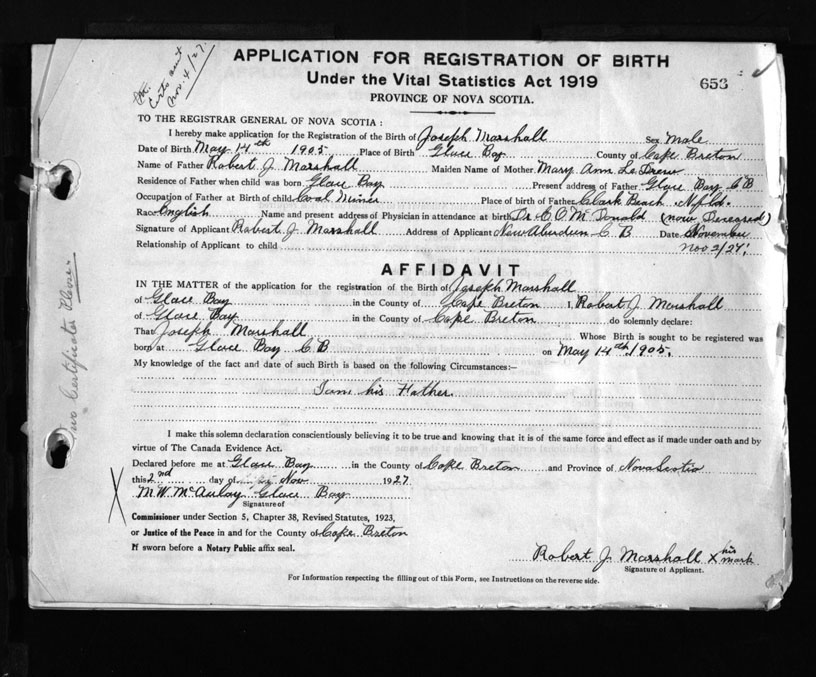 APPLICATION FOR REGISTRATION OF BIRTH
Under the Vital Statistics Act 1919
PROVINCE OF NOVA SCOTIA.
653
Nov. 4/27.
TO THE REGISTRAR GENERAL OF NOVA SCOTIA:
I hereby make application for the Registration of the Birth of Joseph Marshall Sex Male
Date of Birth May 14th 1905 Place of Birth Glace Bay County of Cape Breton
Name of Father Robert J. Marshall Maiden Name of Mother Mary Ann Le Drew
Residence of Father when child was born Glace Bay Present address of Father Glace Bay C B
Occupation of Father at Birth of child Coal Miner Place of birth of Father Clark Beach Nfld.
Race English Name and present address of Physician in attendance at birth Dr. C. O. McDonald (now Deceased)
Signature of Applicant Robert J. Marshall Address of Applicant New Aberdeen C B Date November
Nov 2/27.
Relationship of Applicant to child
AFFIDAVIT
IN THE MATTER of the application for the registration of the Birth of Joseph Marshall
of Glace Bay in the County of Cape Breton I, Robert J. Marshall
of Glace Bay in the County of Cape Breton do solemnly declare:
That Joseph Marshall Whose Birth is sought to be registered was
born at Glace Bay C B on May 14th 1905.
My knowledge of the fact and date of such Birth is based on the following Circumstances:—
I am his Father.
I make this solemn declaration conscientiously believing it to be true and knowing that it is of the same force and effect as if made under oath and by
virtue of The Canada Evidence Act.
Declared before me at Glace Bay in the County of Cape Breton and Province of Nova Scotia
this 2nd day of Nov. 1927
X M. W. McAulay Glace Bay
Signature of
Commissioner under Section 5, Chapter 38, Revised Statutes, 1923,
or Justice of the Peace in and for the County of Cape Breton
If sworn before a Notary Public affix seal.
Robert J. Marshall X his mark
Signature of Applicant.
For Information respecting the filling out of this Form, see Instructions on the reverse side.
no Certificate